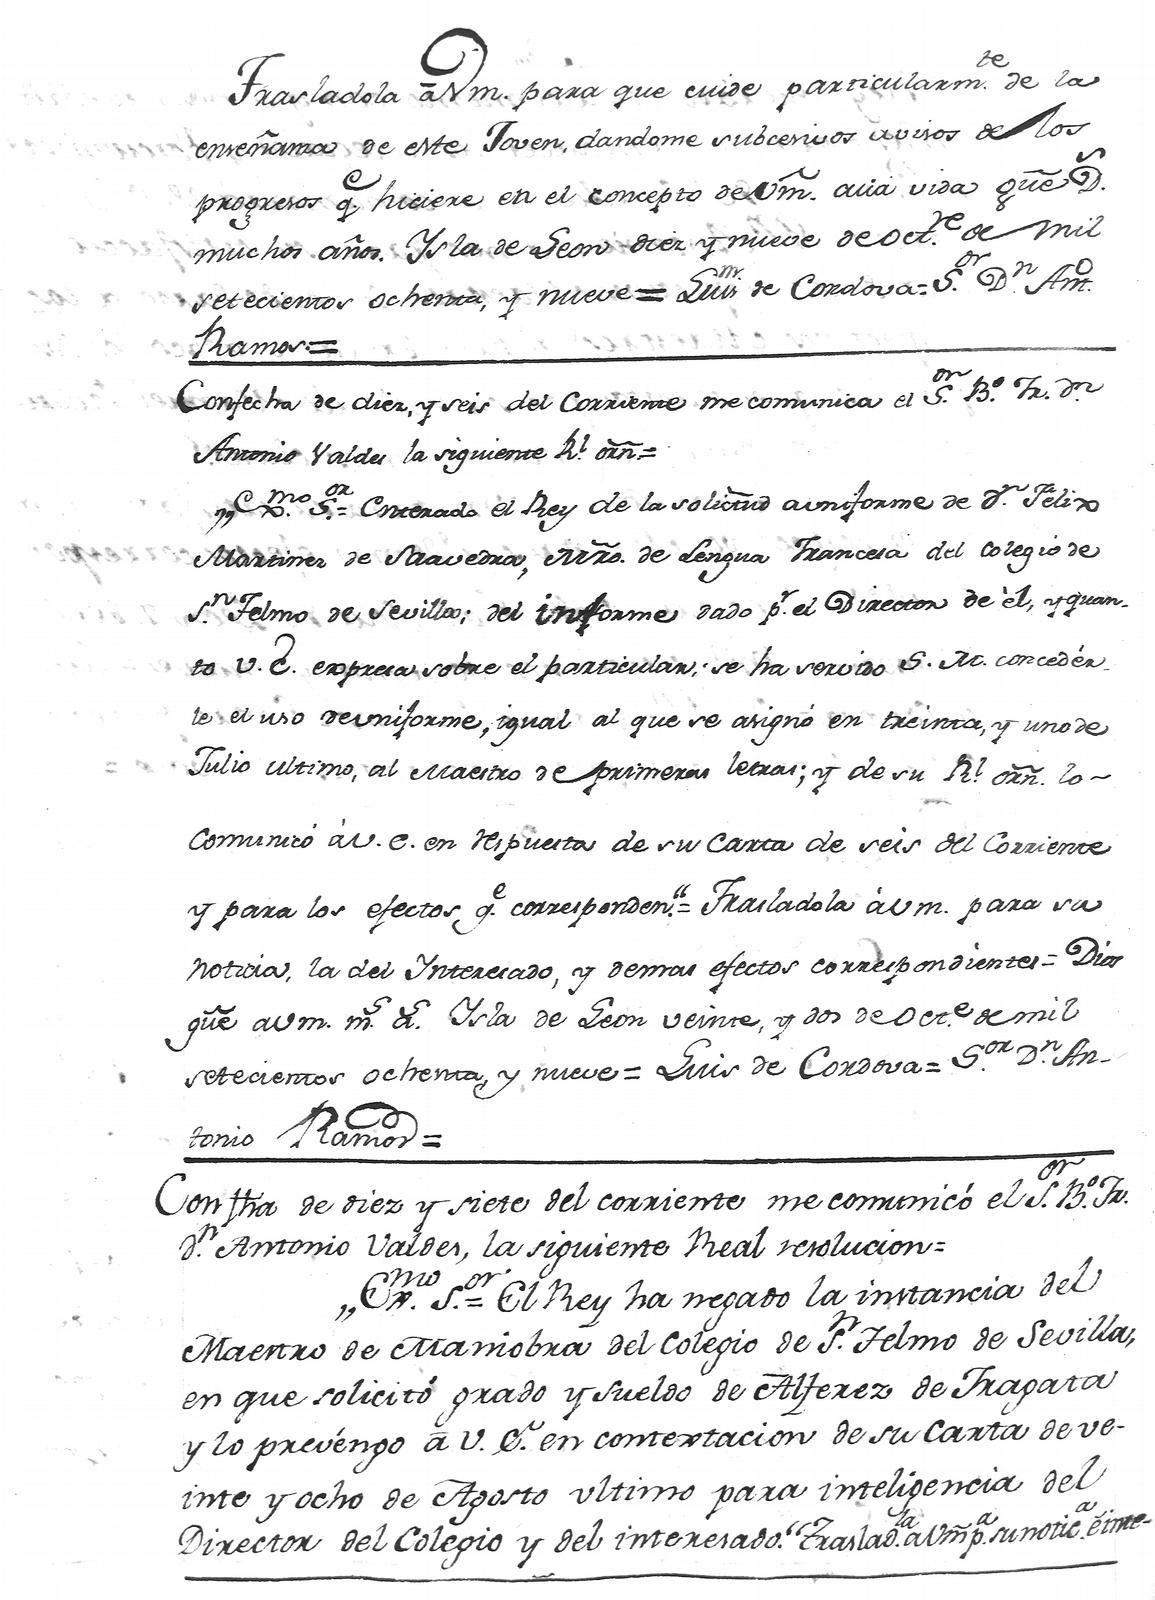 Trasladola â Vm. para que cuide particularm.te de la
enseñanza de este Joven, dandome subcesivos avisos de los
progresos q.e hiciere en el concepto de Vm̃. cuia vida gũe D.s
muchos años. Ysla de Leon diez y nueve de Oct.re de mil
setecientos ochenta, y nueve = Luis de Cordova = S.or D.n Ant.o
Ramos =
Con fecha de diez, y seis del Corriente me comunica el S.or B.o Fr. D.n
Antonio Valdes la siguiente R.l orñ =
„Ex.mo S.or = Enterado el Rey de la solicitud a uniforme de d.n Felix
Martinez de Saavedra, Mrõ. de Lengua Francesa del Colegio de
S.n Telmo de Sevilla; del informe dado p.r el Director de èl, y quan-
to V. E. expresa sobre el particular; se ha servido S. M. concedér-
le el uso de uniforme, igual al que se asignó en treinta, y uno de
Julio ultimo, al Maestro de primeras letras; y de su R.l orñ. lo
Comunicó à V. E. en respuesta de su Carta de seis del Corriente
y para los efectos q.e corresponden." = Trasladola à Vm. para su
noticia, la del Interesado, y demas efectos correspondientes = Dios
gũe a Vm. m.s a.s Ysla de Leon veinte, y dos de Oct.e de mil
setecientos ochenta, y nueve = Luis de Cordova = S.or D.n An-
tonio Ramos =
Con fha de diez y siete del corriente me comunicó el S.or B.o Fr.
d.n Antonio Valdes, la siguiente Real resolucion =
„Ex.mo S.or = El Rey ha negado la instancia del
Maestro de Maniobra del Colegio de S.n Telmo de Sevilla,
en que solicitó grado y sueldo de Alferez de Fragata
y lo prevéngo â V. E. en contextacion de su Carta de ve-
inte y ocho de Agosto ultimo para inteligencia del
Director del Colegio y del interesado." Traslad.la a Vm̃ p.a su notic.a é inte-